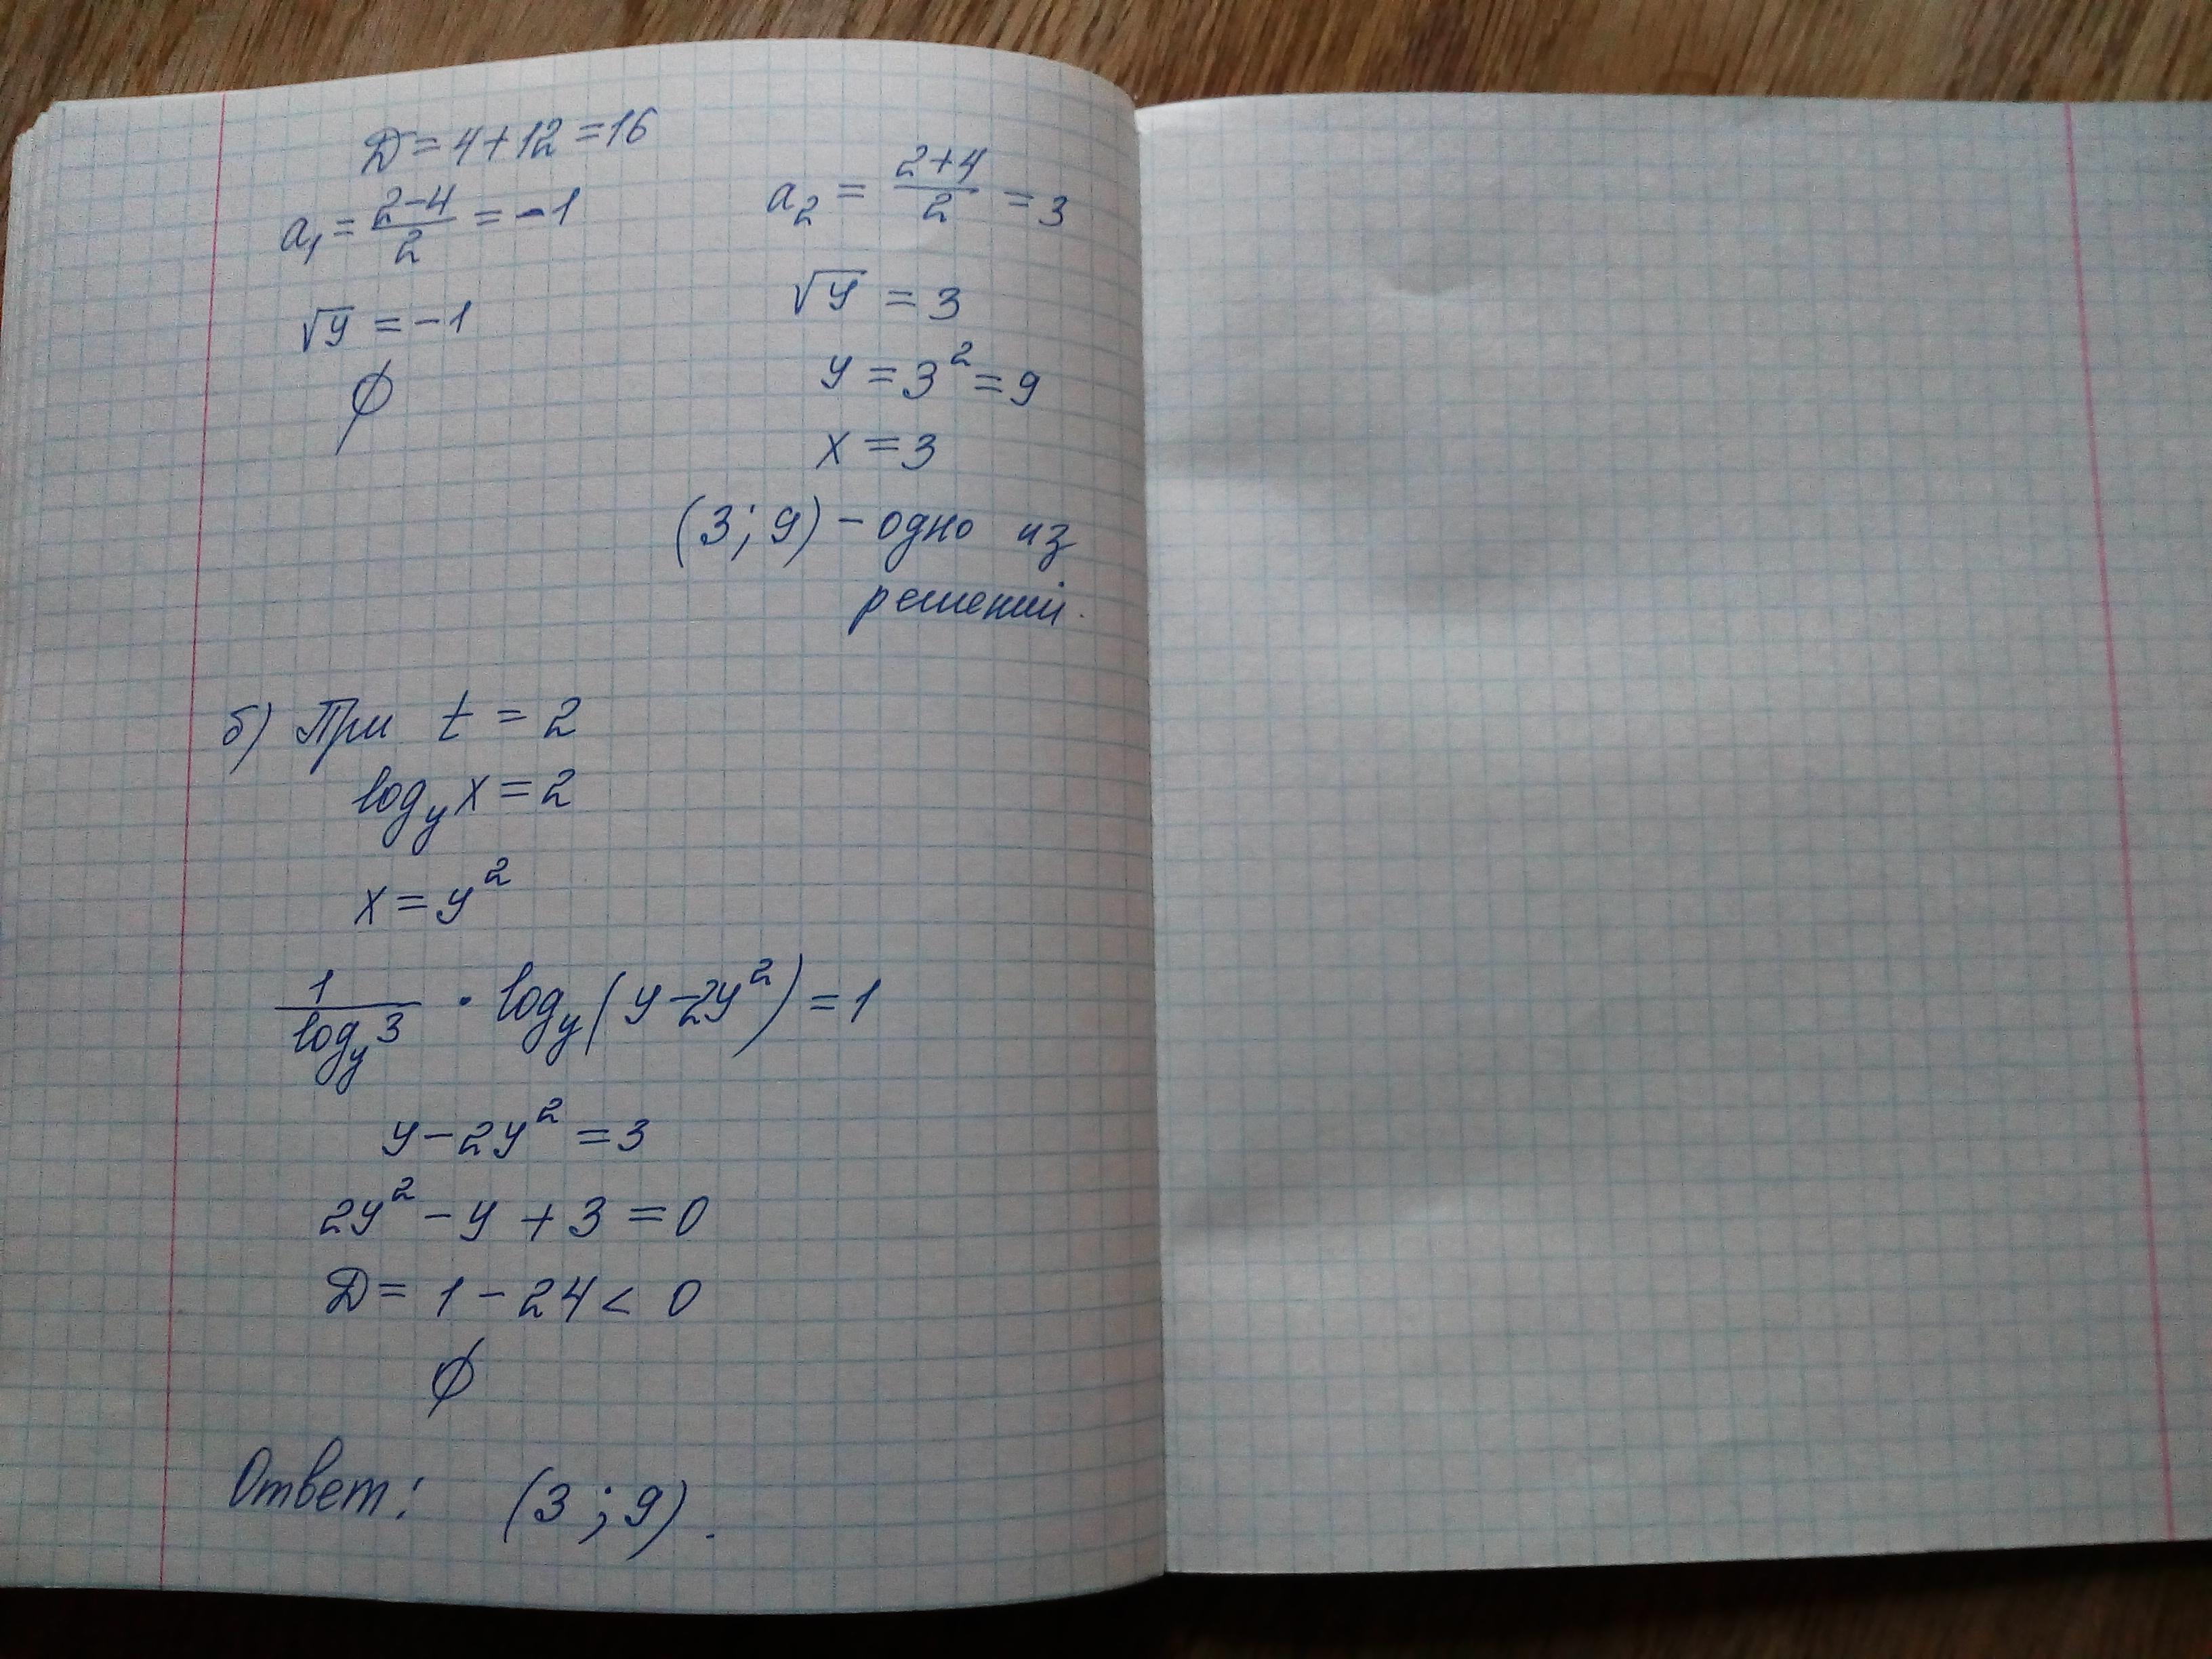 D = 4 + 12 = 16
a₁ = (2-4)/2 = -1
√y = -1
∅
a₂ = (2+4)/2 = 3
√y = 3
y = 3² = 9
x = 3
(3; 9) - одно из
решений.
б) При t = 2
log_y x = 2
x = y²
1/(log_y 3) · log_y (y - 2y²) = 1
y - 2y² = 3
2y² - y + 3 = 0
D = 1 - 24 < 0
∅
Ответ: (3; 9).